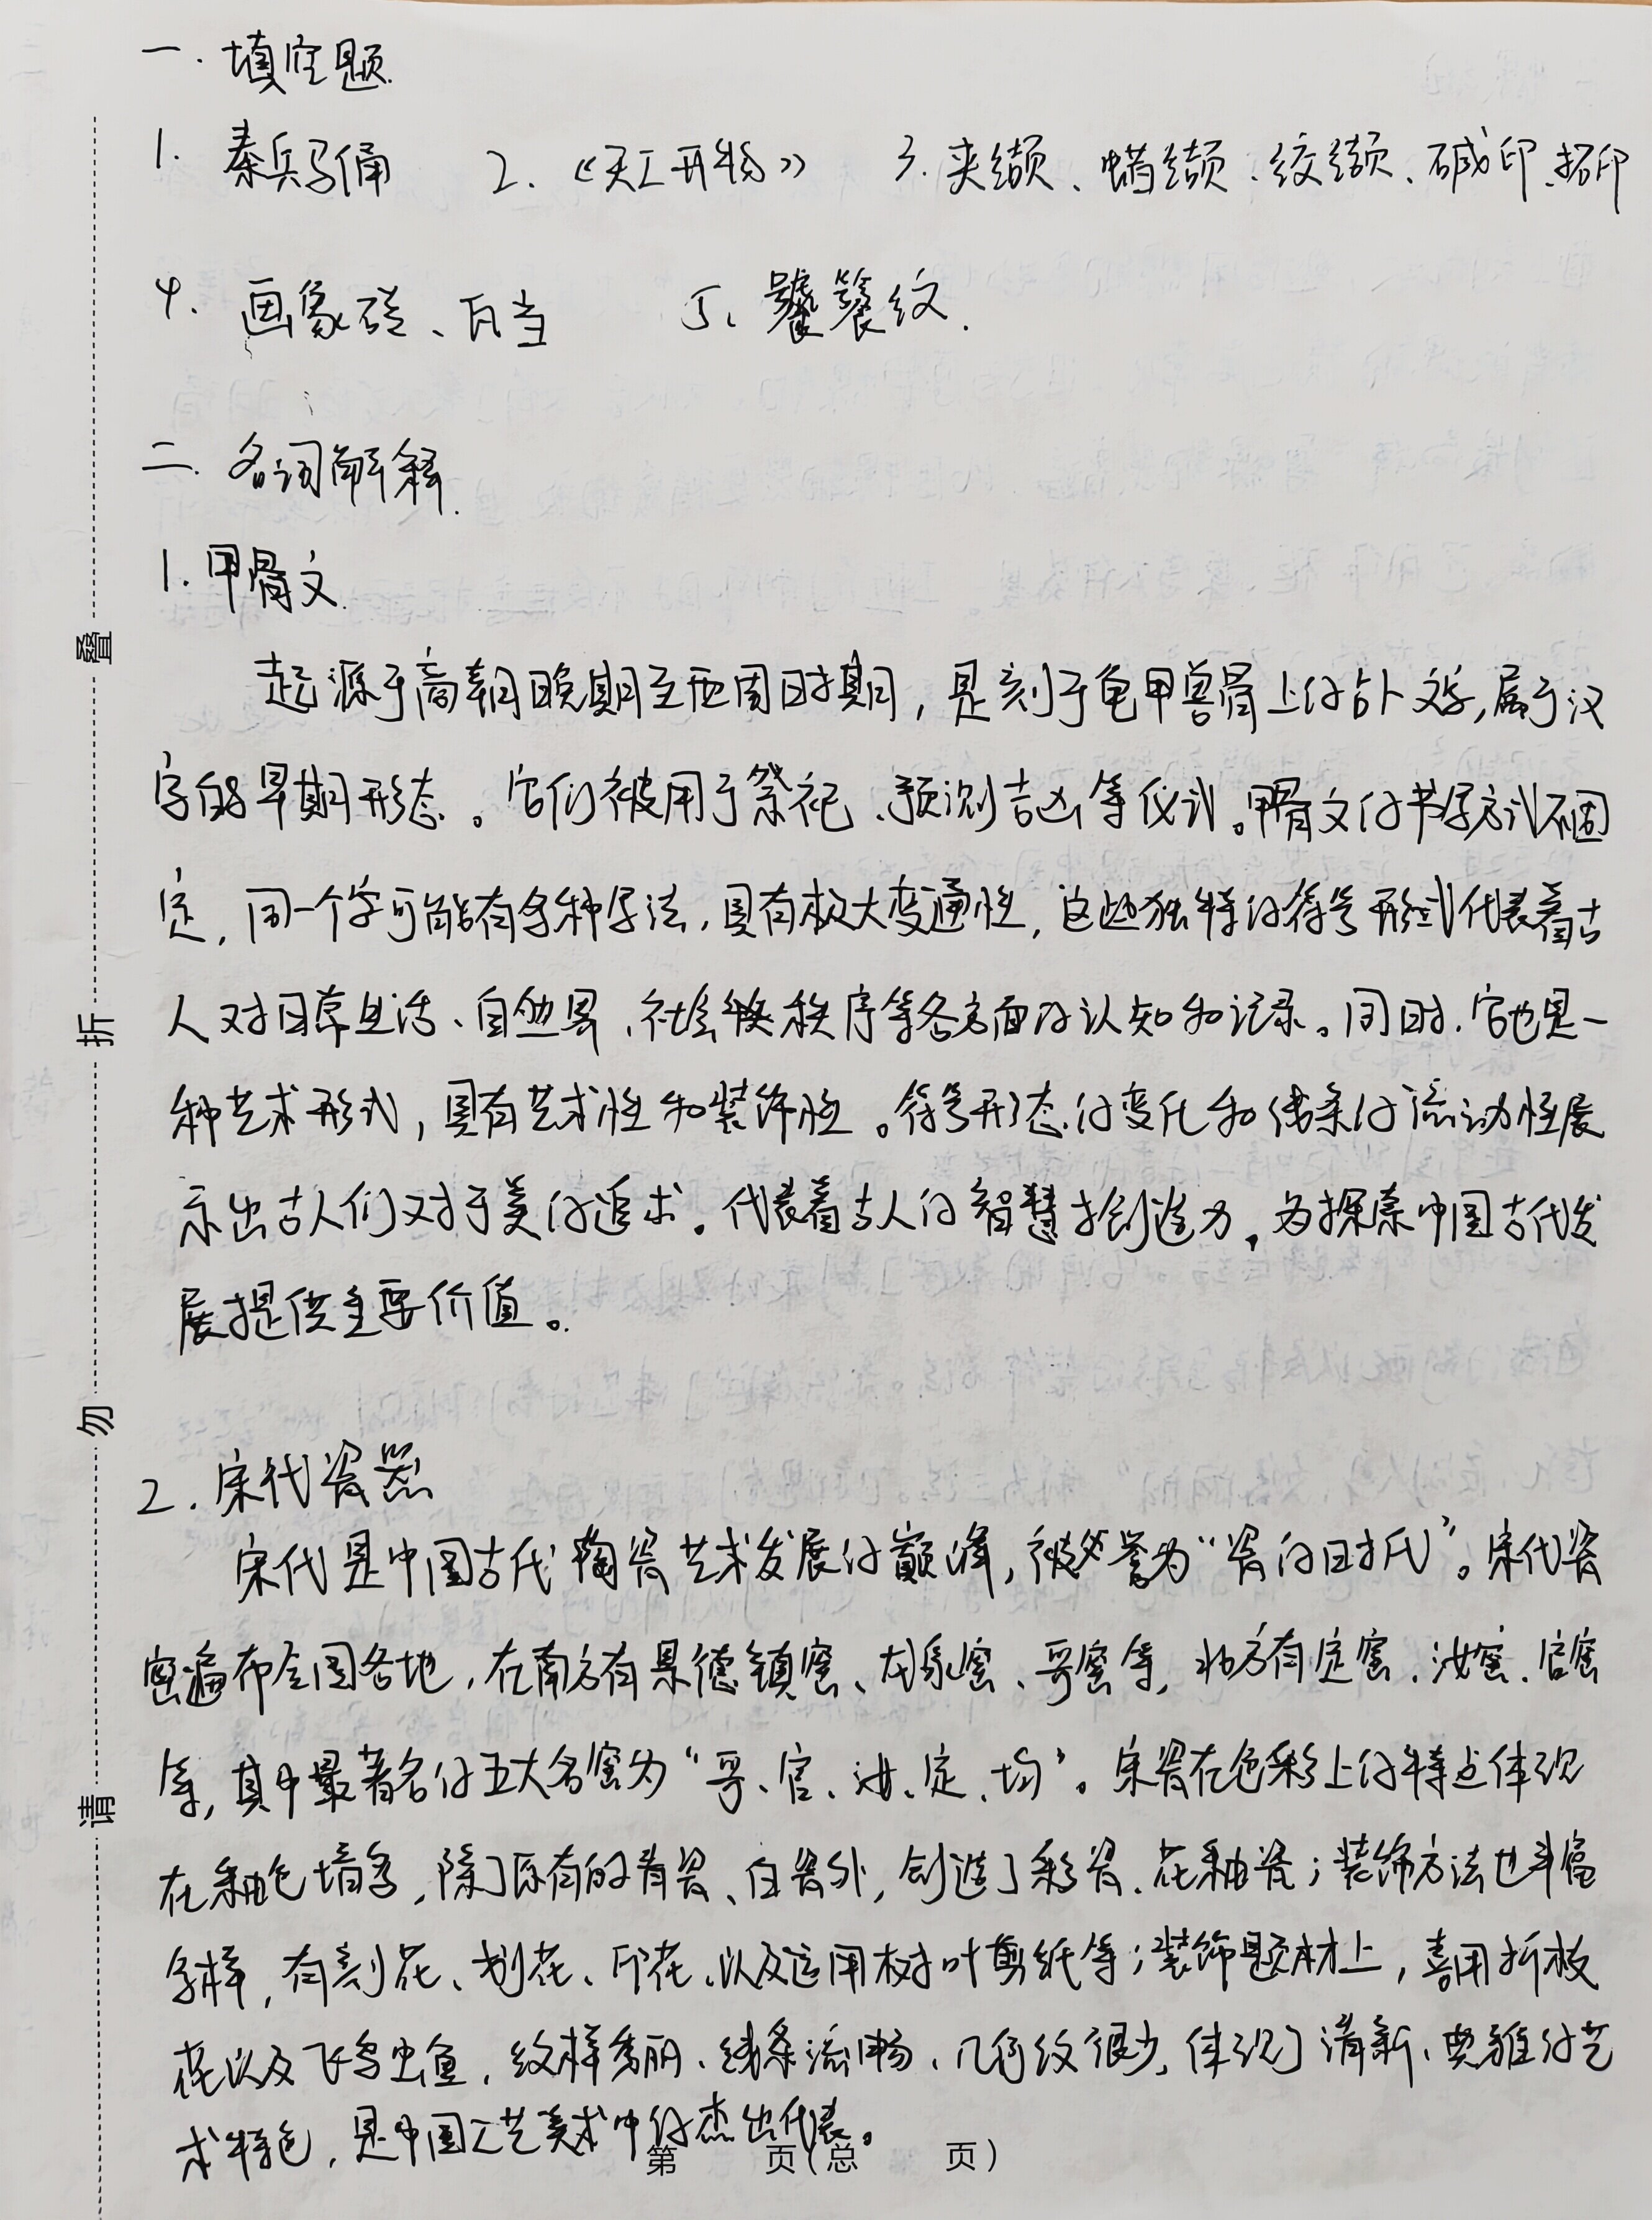 一. 填空题.
1. 秦兵马俑 2. 《天工开物》 3. 夹缬、蜡缬、绞缬、碱印、拓印
4. 画象砖、瓦当 5. 饕餮纹.
二. 名词解释.
1. 甲骨文.
起源于商朝晚期至西周时期，是刻于龟甲兽骨上的占卜文字，属于汉
字的早期形态。它们被用于祭祀、预测吉凶等仪式。甲骨文的书写方式不固
定，同一个字可能有多种写法，具有极大变通性，这些独特的符号形式代表着古
人对日常生活、自然界、社会秩序等各方面的认知和记录。同时，它也是一
种艺术形式，具有艺术性和装饰性。符号形态的变化和线条的流动性展
示出古人们对于美的追求。代表着古人的智慧和创造力，为探索中国古代发
展提供重要价值。
2. 宋代瓷器
宋代是中国古代陶瓷艺术发展的巅峰，被誉为“瓷的时代”。宋代瓷
窑遍布全国各地，在南方有景德镇窑、龙泉窑、哥窑等，北方有定窑、汝窑、官窑
等，其中最著名的五大名窑为“哥、官、汝、定、均”。宋瓷在色彩上的特点体现
在釉色增多，除了原有的青瓷、白瓷外，创造了彩瓷、花釉瓷；装饰方法也丰富
多样，有刻花、划花、印花、以及运用树叶剪纸等；装饰题材上，喜用折枝
花以及飞鸟虫鱼，纹样秀丽、线条流畅、几何纹很少，体现了清新、典雅的艺
术特色，是中国工艺美术中的杰出代表。
第 页（总 页）
请 勿 折 叠